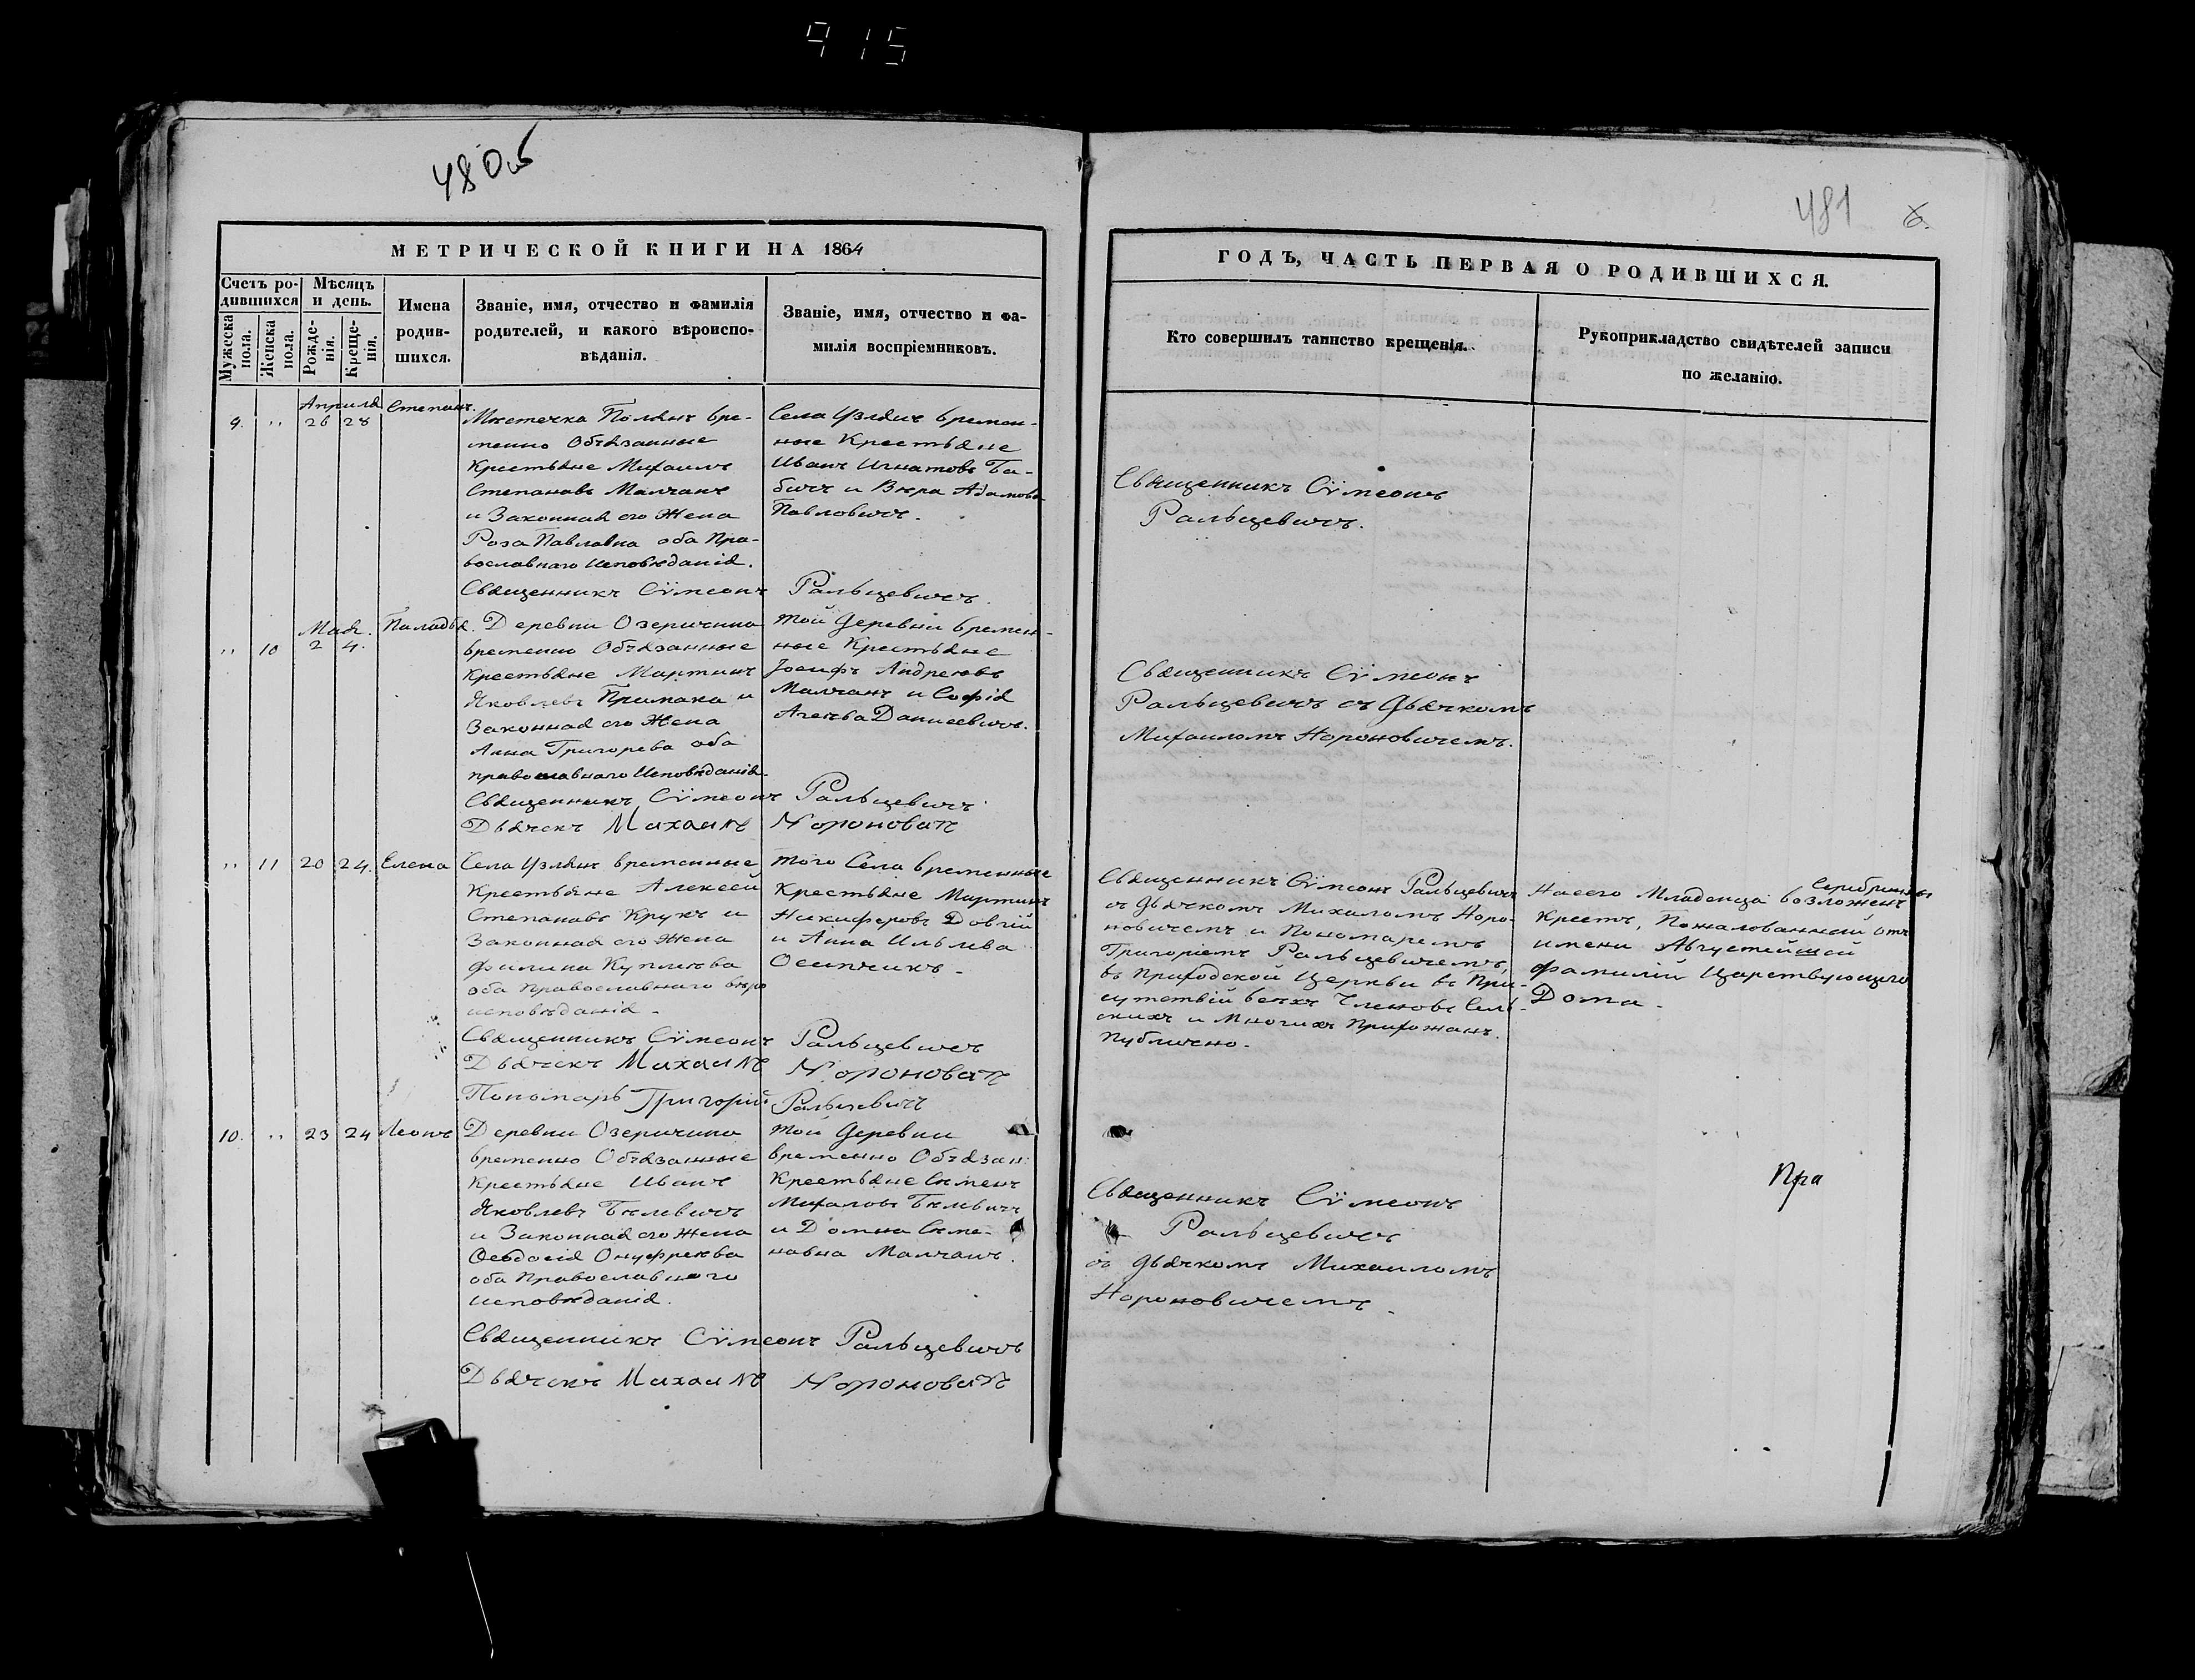 915
480об
481
6.
МЕТРИЧЕСКОЙ КНИГИ НА 1864
ГОДЪ, ЧАСТЬ ПЕРВАЯ О РОДИВШИХСЯ.
Счетъ ро-
дившихся
Мѣсяцъ
и день.
Мужеска
пола.
Женска
пола.
Рожде-
нія.
Креще-
нія.
Имена
родив-
шихся.
Званіе, имя, отчество и фамилія
родителей, и какого вѣроиспо-
вѣданія.
Званіе, имя, отчество и фа-
милія воспріемниковъ.
Кто совершилъ таинство крещенія.
Рукоприкладство свидѣтелей записи
по желанію.
Апрѣля
9. " 26 28
Степанъ.
Мѣстечка Полянъ вре-
менно Обязанные
Крестьяне Михаилъ
Степановъ Малчанъ
и Законная его Жена
Роза Павловна оба Пра-
вославнаго Исповѣданія.
Священникъ Сѵмеонъ Ральцевичъ.
Села Узлянъ времен-
ные Крестьяне
Иванъ Игнатовъ Ба-
бичъ и Вѣра Адамова
Павловичъ.
Священникъ Сѵмеонъ
Ральцевичъ.
Мая.
" 10 2 4.
Паладья.
Деревни Озеричина
временно Обязанные
Крестьяне Мартинъ
Яковлевъ Примака и
Законная его Жена
Анна Григорева оба
православнаго Исповѣданія.
Священникъ Сѵмеонъ Ральцевичъ
Дьячекъ Михаилъ Нороновичъ
той Деревни времен-
ные Крестьяне
Іосифъ Андреевъ
Малчанъ и Софія
Агеева Данисевичъ.
Священникъ Сѵмеонъ
Ральцевичъ съ Дьячкомъ
Михаиломъ Нороновичемъ.
" 11 20 24. Елена
Села Узлянъ временные
Крестьяне Алексей
Степановъ Крукъ и
Законная его Жена
оба Православнаго вѣро
исповѣданія.
Священникъ Сѵмеонъ Ральцевичъ
Дьячекъ Михаилъ Нороновичъ
Пономарь Григорій Ральцевичъ
того Села временные
Крестьяне Мартинъ
Никифоровъ Довгій
и Анна Ильлева
Осипчикъ.
Священникъ Сѵмеонъ Ральцевичъ
съ дьячкомъ Михаломъ Норо-
новичемъ и Пономаремъ
Григоріемъ Ральцевичемъ,
въ Приходской Церкви въ При-
сутствіи всехъ Членовъ Сель-
скихъ и Многихъ Прихожанъ.
Публично.
Серебрянный
На сего Младенца возложенъ
Крестъ, Пожалованный отъ
имени Августейшей
фамиліи Царствующаго
Дома.
10. " 23 24 Леонъ
Деревни Озеричино
временно Обязанные
Крестьяне Иванъ
Яковлевъ Бѣлевичъ
и Законная его Жена
Феодосія Онуфреева
оба Православного
исповѣданія.
Священникъ Сѵмеонъ Ральцевичъ
Дьячекъ Михаилъ Нороновичъ
той Деревни
временно Обязан:
Крестьяне Сѣменъ
Михаловъ Бѣлевичъ
и Домна Сѣме-
новна Малчанъ.
Священникъ Сѵмеонъ
Ральцевичъ
съ дьячкомъ Михаиломъ
Нороновичемъ.
Пра